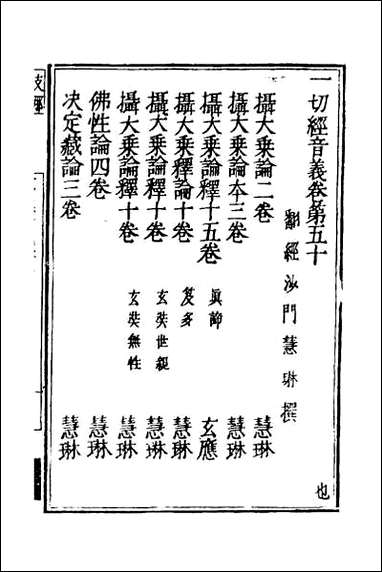 一切經音義卷第五十
翻經沙門慧琳撰
也
攝大乗論二卷 慧琳
攝大乗論本三卷 慧琳
攝大乗論釋十五卷 真諦 玄應
攝大乗釋論十卷 笈多 慧琳
攝大乗論釋十卷 玄奘世親 慧琳
攝大乗論釋十卷 玄奘無性 慧琳
佛性論四卷 慧琳
决定藏論三卷 慧琳